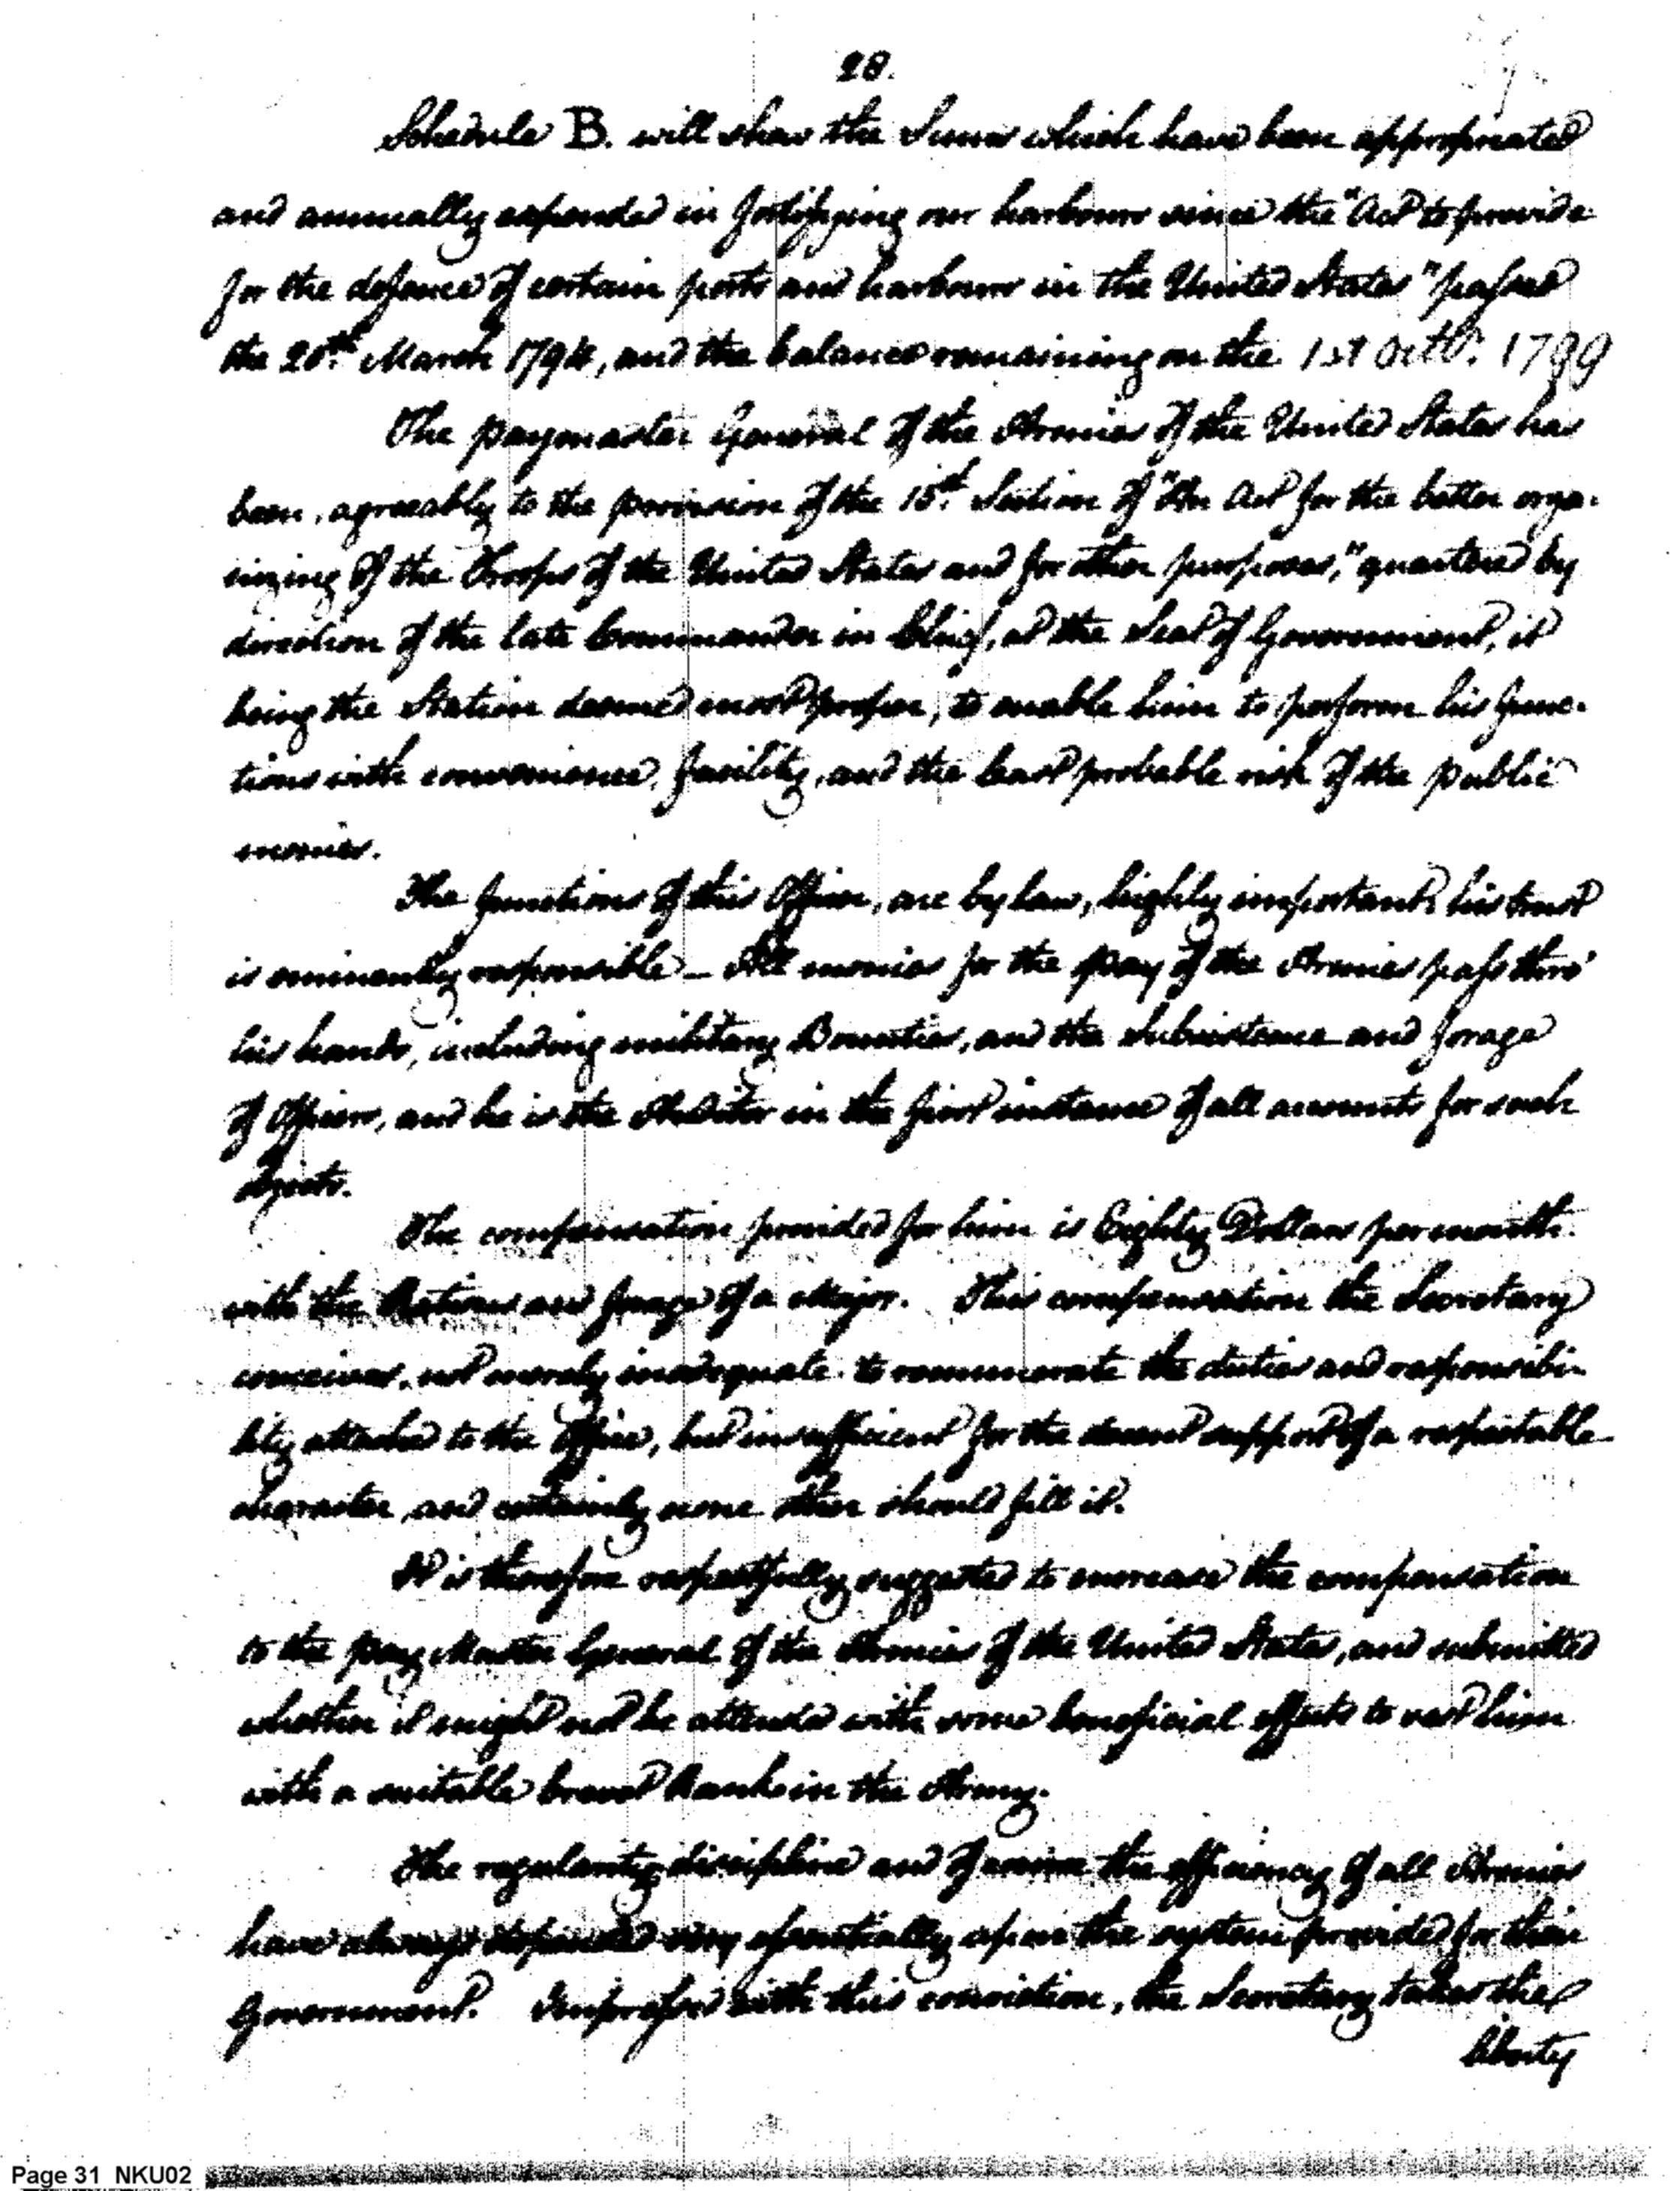 28.
Schedule B. will show the Sums which have been appropriated
and annually expended in fortifying our harbours since the "Act to provide
for the defence of certain ports and harbours in the United States" passed
the 20th. March 1794, and the balance remaining on the 1st Octbr. 1799
The paymaster General of the Armies of the United States has
been, agreeably to the provision of the 15th. Section of "An Act for the better orga-
nizing of the Troops of the United States and for other purposes," quartered by
direction of the late Commander in Chief, at the Seat of Government, it
being the Station deemed most proper, to enable him to perform his func-
tions with convenience, facility, and the least probable risk of the public
monies.
The functions of this Officer, are by law, highly important, his trust
is eminently responsible – All monies for the pay of the Armies pass thro'
his hands, including military Bounties, and the Subsistence and forage
of Officers, and he is the Auditor in the first instance of all accounts for such
objects.
The compensation provided for him is Eighty Dollars per month
with the Rations and forage of a Major. This compensation the Secretary
conceives, not merely inadequate to remunerate the duties and responsibi-
lity attached to the Office, but insufficient for the decent support of a respectable
character, and certainly none other should fill it.
It is therefore respectfully suggested to increase the compensation
to the pay Master General of the Armies of the United States, and submitted
whether it might not be attended with some beneficial effects to vest him
with a suitable brevet Rank in the Army.
The regularity, discipline and of course the efficiency of all Armies
have always depended very essentially upon the system provided for their
Government. Impressed with this conviction, the Secretary takes the
liberty
Page 31 NKU02